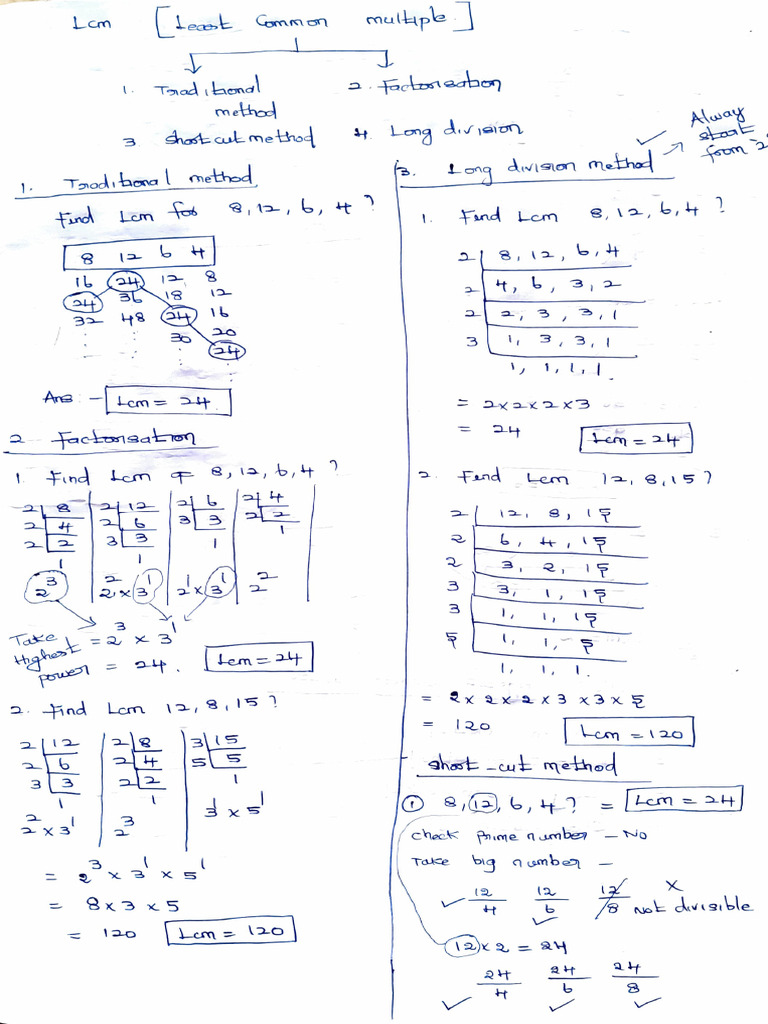 Lcm [Least Common multiple]
1. Traditional method
2. Factorisation
3 short cut method
4. Long division
1. Traditional method
Find Lcm for 8, 12, 6, 4 ?
8 12 6 4
16 24 12 8
24 36 18 12
32 48 24 16
30 20
24
Ans :- Lcm = 24
2 Factorisation
1. Find Lcm of 8, 12, 6, 4 ?
2 8 2 12 2 6 2 4
2 4 2 6 3 3 2 2
2 2 3 3 1 1
1 1
2³ 2² × 3¹ 2¹ × 3¹ 2²
Take Highest power
= 2³ × 3¹
= 24. Lcm = 24
2. Find Lcm 12, 8, 15 ?
2 12 2 8 3 15
2 6 2 4 5 5
3 3 2 2 1
1 1
2² × 3¹ 2³ 3¹ × 5¹
= 2³ × 3¹ × 5¹
= 8 × 3 × 5
= 120 Lcm = 120
3. Long division method → Alway start from '2'
1. Find Lcm 8, 12, 6, 4 ?
2 8, 12, 6, 4
2 4, 6, 3, 2
2 2, 3, 3, 1
3 1, 3, 3, 1
1, 1, 1, 1.
= 2×2×2×3
= 24 Lcm = 24
2. Find Lcm 12, 8, 15 ?
2 12, 8, 15
2 6, 4, 15
2 3, 2, 15
3 3, 1, 15
3 1, 1, 15
5 1, 1, 5
1, 1, 1.
= 2 × 2 × 2 × 3 × 3 × 5
= 120 Lcm = 120
short-cut method
① 8, 12, 6, 4 ? = Lcm = 24
check prime number - No
Take big number -
✓ 12/4 12/6 ✓ 12/8 × Not divisible
12 × 2 = 24
24/4 24/6 24/8
✓ ✓ ✓